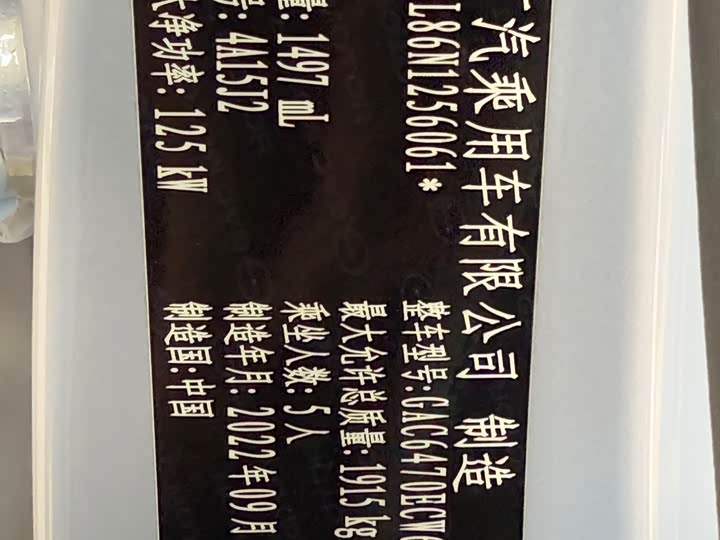 汽乘用车有限公司 制造
L86N1256061*
整车型号:GAC6470HCW6
量: 1497 mL
最大允许总质量: 1915 kg
号: 4A15J2
乘坐人数: 5人
大净功率: 125 kW
制造年月: 2022年09月
制造国:中国